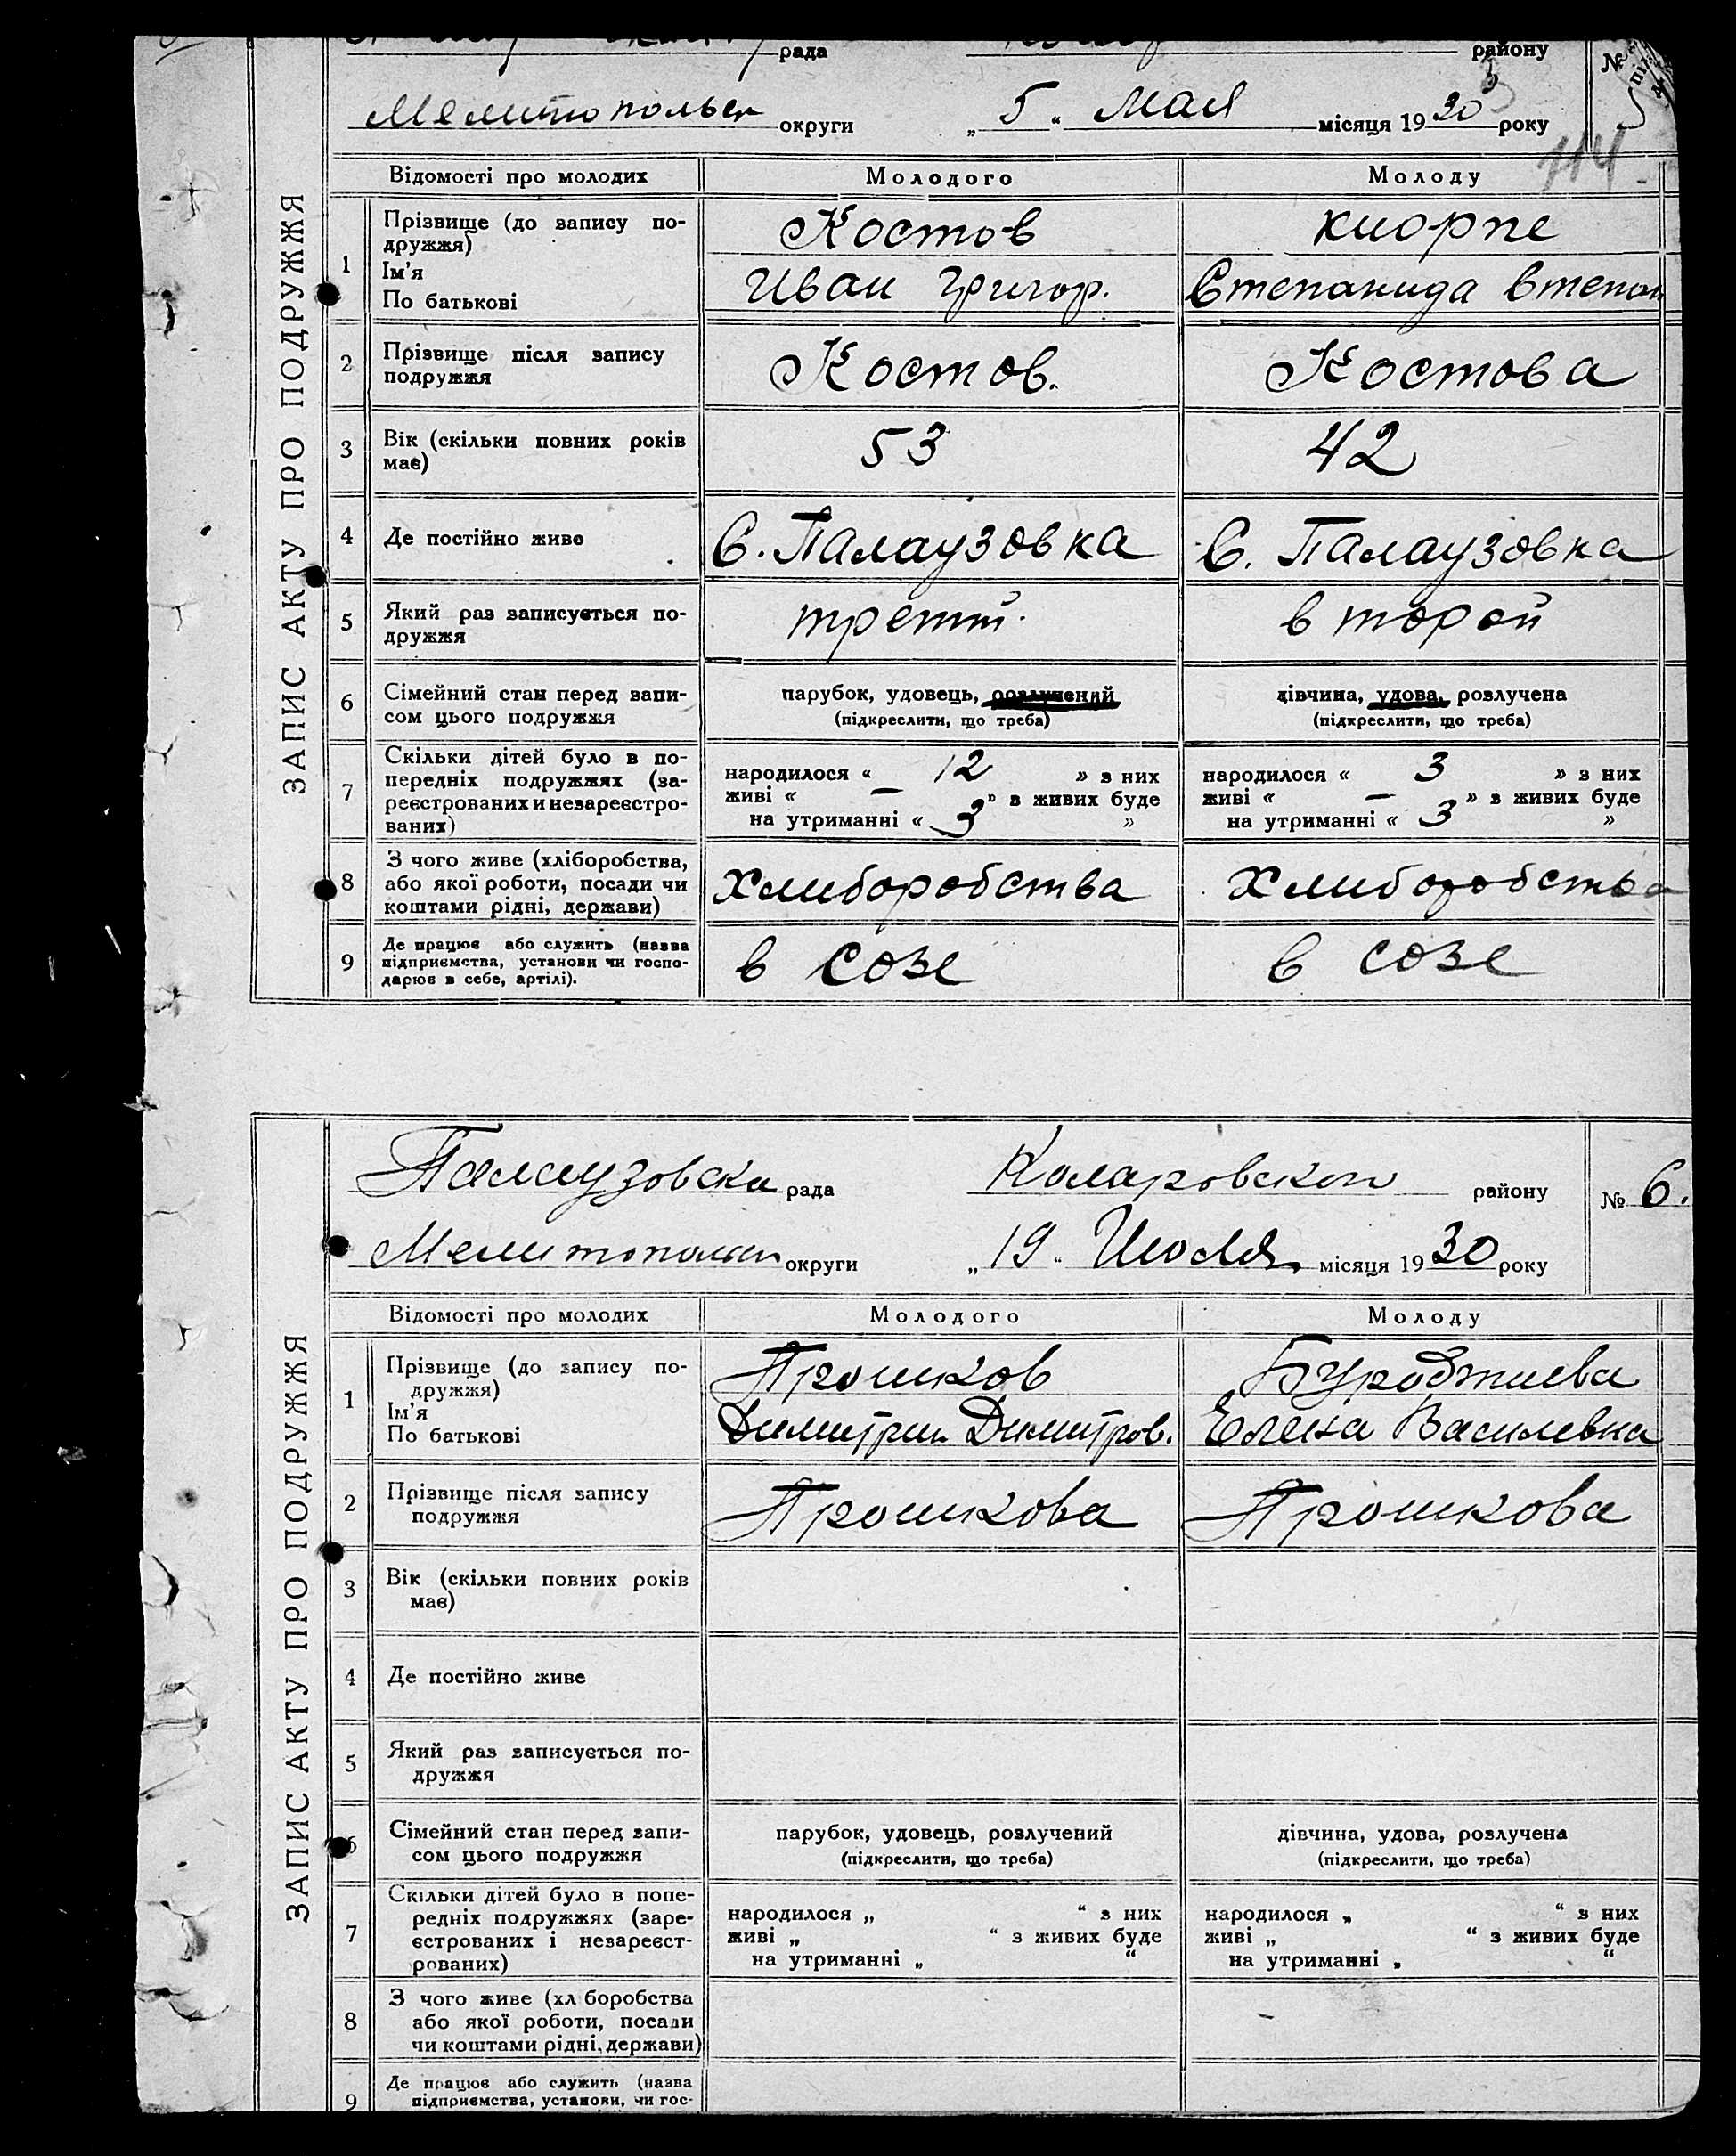 рада району №
Мелитопольск округи „ 5 “ Мая місяця 1930 року 5
114
ЗАПИС АКТУ ПРО ПОДРУЖЖЯ
Відомості про молодих Молодого Молоду
1 Прізвище (до запису по-
дружжя)
Ім'я
По батькові
Костов Киорпе
Иван Григор. Степанида Степан
2 Прізвище після запису
подружжя
Костов. Костова
3 Вік (скільки повних років
має)
53 42
4 Де постійно живе С. Палаузовка С. Палаузовка
5 Який раз записується по-
дружжя
третий второй
6 Сімейний стан перед запи-
сом цього подружжя
парубок, удовець, розлучений дівчина, удова, розлучена
(підкреслити, що треба) (підкреслити, що треба)
7 Скільки дітей було в по-
передніх подружжях (за-
реєстрованих и незареєстро-
ваних)
народилося « 12 » з них народилося « 3 » з них
живі « — » з живих буде живі « — » з живих буде
на утриманні « 3 » на утриманні « 3 »
8 З чого живе (хліборобства,
або якої роботи, посади чи
коштами рідні, держави)
хлиборобства хлиборобства
9 Де працює або служить (назва
підприємства, установи чи госпо-
дарює в себе, артілі).
в созе в созе
Палаузовска рада Коларовском району № 6.
Мелитопольск округи „ 19 “ Июля місяця 1930 року
ЗАПИС АКТУ ПРО ПОДРУЖЖЯ
Відомості про молодих Молодого Молоду
1 Прізвище (до запису по-
дружжя)
Ім'я
По батькові
Прошков Буроджиева
Димитрий Димитров. Елена Василевна
2 Прізвище після запису
подружжя
Прошкова Прошкова
3 Вік (скільки повних років
має)
4 Де постійно живе
5 Який раз записується по-
дружжя
6 Сімейний стан перед запи-
сом цього подружжя
парубок, удовець, розлучений дівчина, удова, розлучена
(підкреслити, що треба) (підкреслити, що треба)
7 Скільки дітей було в попе-
редніх подружжях (заре-
єстрованих і незареєст-
рованих)
народилося „ “ з них народилося „ “ з них
живі „ “ з живих буде живі „ “ з живих буде
на утриманні „ “ на утриманні „ “
8 З чого живе (хл боробства
або якої роботи, посади
чи коштами рідні, держави)
9 Де працює або служить (назва
підприємства, установи, чи гос-